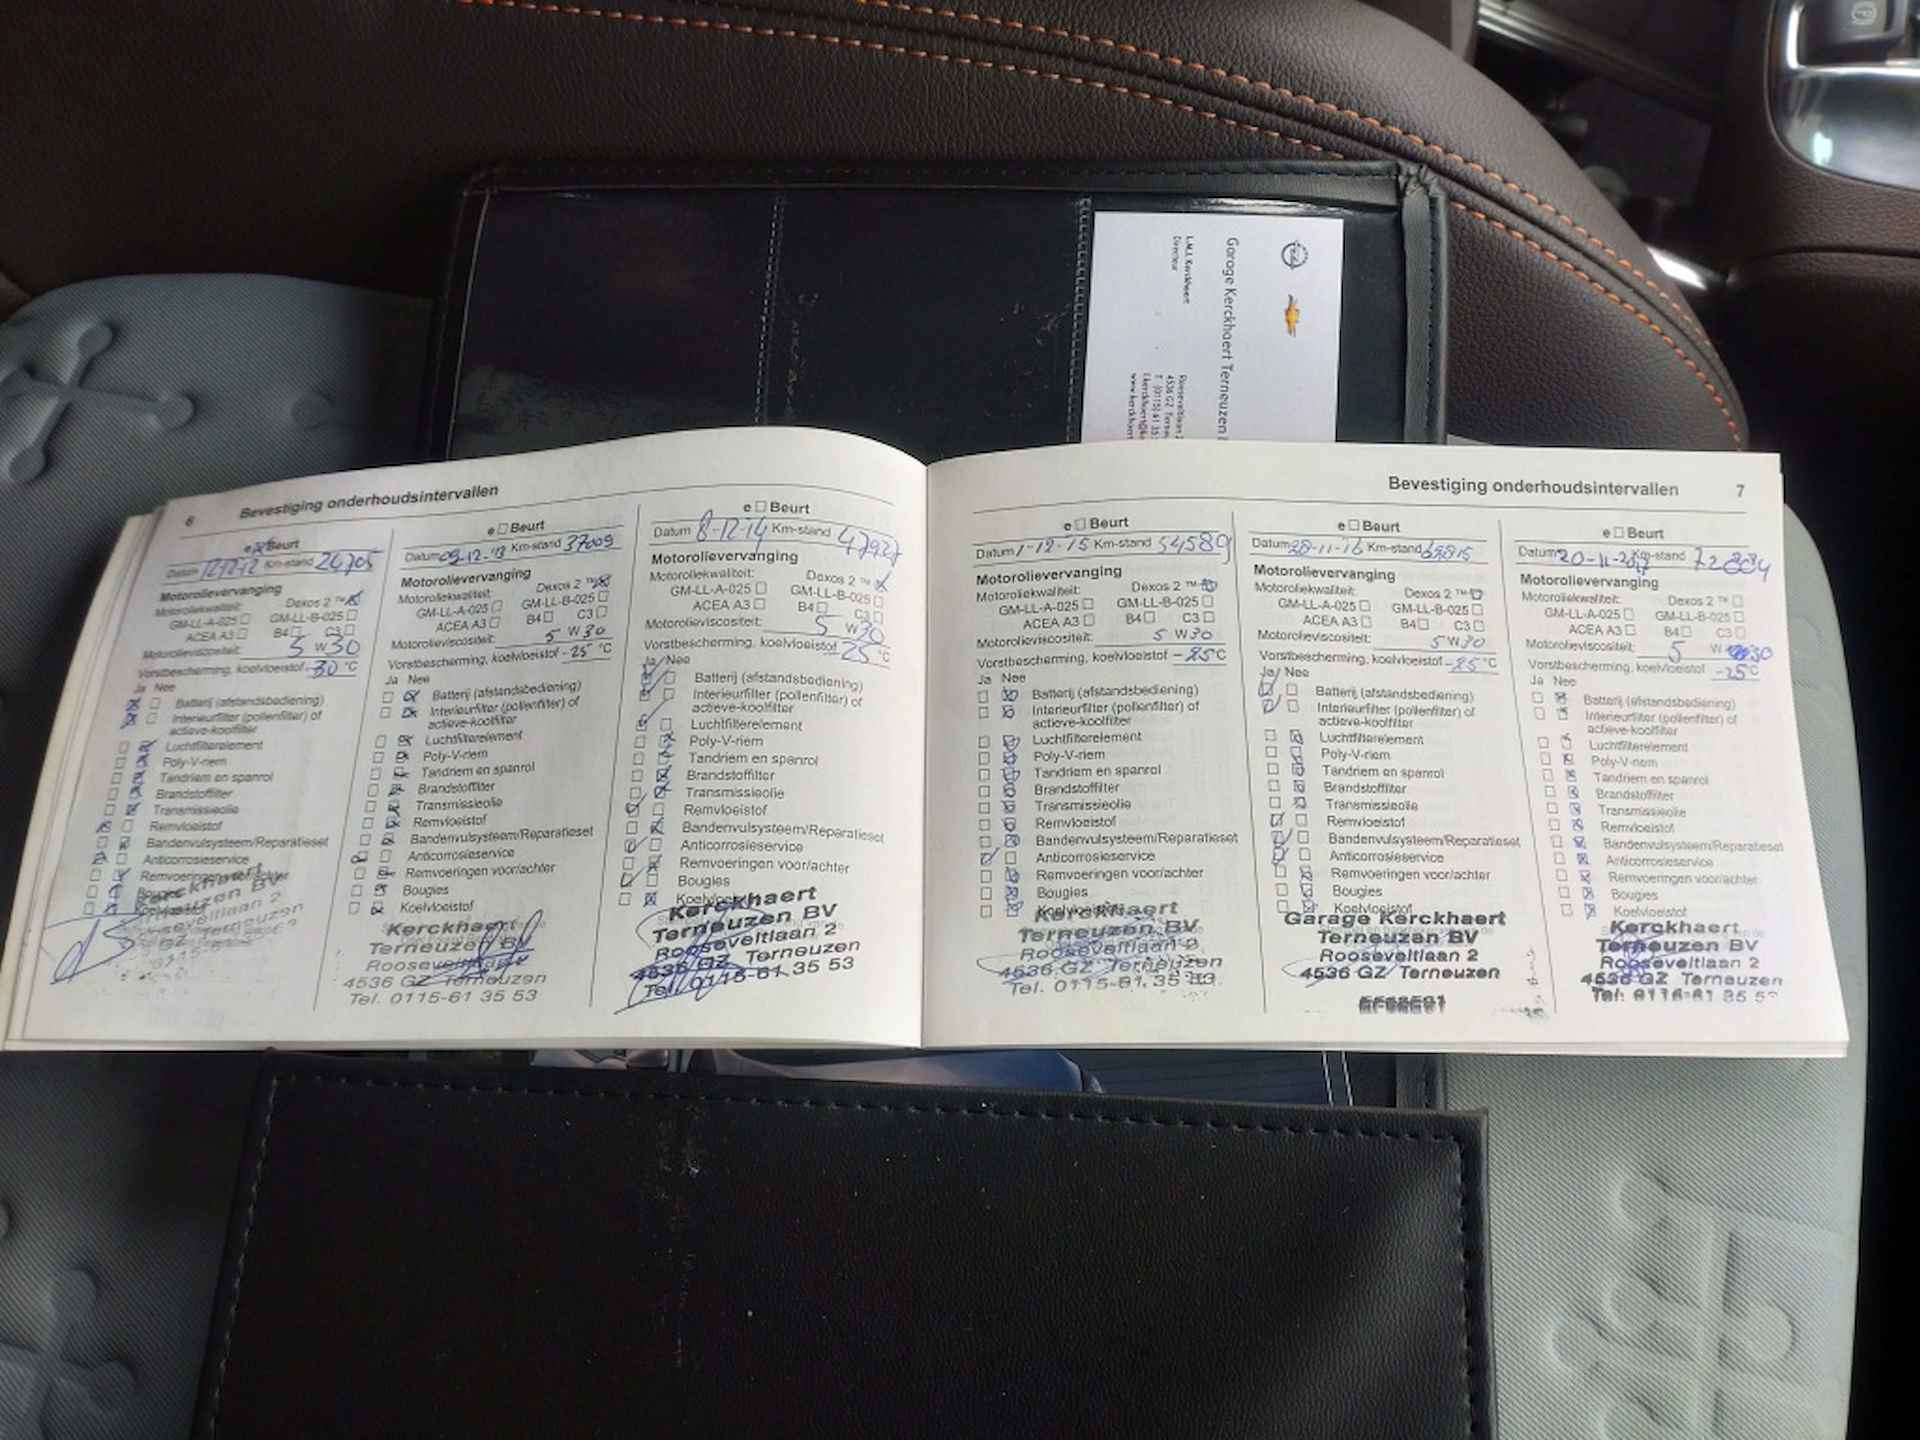 Garage Kerckhaert Terneuzen
L.M.J. Kerckhaert
Directeur
Rooseveltlaan 2
4536 GZ Terneu
T (0115) 61 35
6 Bevestiging onderhoudsintervallen
e Beurt
Datum 12-12-12 Km-stand 24705
Motorolievervanging
Motoroliekwaliteit: Dexos 2 ™
GM-LL-A-025 GM-LL-B-025
ACEA A3 B4 C3
Motorolieviscositeit: 5 W 30
Vorstbescherming, koelvloeistof -30 °C
Ja Nee
Batterij (afstandsbediening)
Interieurfilter (pollenfilter) of
actieve-koolfilter
Luchtfilterelement
Poly-V-riem
Tandriem en spanrol
Brandstoffilter
Transmissieolie
Remvloeistof
Bandenvulsysteem/Reparatieset
Anticorrosieservice
Remvoeringen voor/achter
Bougies
Kerckhaert
Terneuzen BV
Rooseveltlaan 2
e Beurt
Datum 09-12-'13 Km-stand 37009
Motorolievervanging
Motoroliekwaliteit: Dexos 2 ™
GM-LL-A-025 GM-LL-B-025
ACEA A3 B4 C3
Motorolieviscositeit: 5 W 30
Vorstbescherming, koelvloeistof -25 °C
Ja Nee
Batterij (afstandsbediening)
Interieurfilter (pollenfilter) of
actieve-koolfilter
Luchtfilterelement
Poly-V-riem
Tandriem en spanrol
Brandstoffilter
Transmissieolie
Remvloeistof
Bandenvulsysteem/Reparatieset
Anticorrosieservice
Remvoeringen voor/achter
Bougies
Koelvloeistof
Kerckhaert
Terneuzen BV
Rooseveltlaan
4536 GZ Terneuzen
Tel. 0115-61 35 53
e Beurt
Datum 8-12-14 Km-stand 47927
Motorolievervanging
Motoroliekwaliteit: Dexos 2 ™
GM-LL-A-025 GM-LL-B-025
ACEA A3 B4 C3
Motorolieviscositeit: 5 W 30
Vorstbescherming, koelvloeistof -25 °C
Ja Nee
Batterij (afstandsbediening)
Interieurfilter (pollenfilter) of
actieve-koolfilter
Luchtfilterelement
Poly-V-riem
Tandriem en spanrol
Brandstoffilter
Transmissieolie
Remvloeistof
Bandenvulsysteem/Reparatieset
Anticorrosieservice
Remvoeringen voor/achter
Bougies
Koelvloeistof
Kerckhaert
Terneuzen BV
Rooseveltlaan 2
4536 GZ Terneuzen
Tel. 0115-61 35 53
Bevestiging onderhoudsintervallen 7
e Beurt
Datum 1-12-15 Km-stand 54589
Motorolievervanging
Motoroliekwaliteit: Dexos 2 ™
GM-LL-A-025 GM-LL-B-025
ACEA A3 B4 C3
Motorolieviscositeit: 5 W 30
Vorstbescherming, koelvloeistof -25 °C
Ja Nee
Batterij (afstandsbediening)
Interieurfilter (pollenfilter) of
actieve-koolfilter
Luchtfilterelement
Poly-V-riem
Tandriem en spanrol
Brandstoffilter
Transmissieolie
Remvloeistof
Bandenvulsysteem/Reparatieset
Anticorrosieservice
Remvoeringen voor/achter
Bougies
Koelvloeistof
Kerckhaert
Terneuzen BV
Rooseveltlaan 2
4536 GZ Terneuzen
Tel. 0115-61 35 53
e Beurt
Datum 28-11-16 Km-stand
Motorolievervanging
Motoroliekwaliteit: Dexos 2 ™
GM-LL-A-025 GM-LL-B-025
ACEA A3 B4 C3
Motorolieviscositeit: 5 W 30
Vorstbescherming, koelvloeistof -25 °C
Ja Nee
Batterij (afstandsbediening)
Interieurfilter (pollenfilter) of
actieve-koolfilter
Luchtfilterelement
Poly-V-riem
Tandriem en spanrol
Brandstoffilter
Transmissieolie
Remvloeistof
Bandenvulsysteem/Reparatieset
Anticorrosieservice
Remvoeringen voor/achter
Bougies
Koelvloeistof
Garage Kerckhaert
Terneuzen BV
Rooseveltlaan 2
4536 GZ Terneuzen
e Beurt
Datum 20-11-2017 Km-stand 72884
Motorolievervanging
Motoroliekwaliteit: Dexos 2 ™
GM-LL-A-025 GM-LL-B-025
ACEA A3 B4 C3
Motorolieviscositeit: 5 W 30
Vorstbescherming, koelvloeistof -25°C
Ja Nee
Batterij (afstandsbediening)
Interieurfilter (pollenfilter) of
actieve-koolfilter
Luchtfilterelement
Poly-V-riem
Tandriem en spanrol
Brandstoffilter
Transmissieolie
Remvloeistof
Bandenvulsysteem/Reparatieset
Anticorrosieservice
Remvoeringen voor/achter
Bougies
Koelvloeistof
Kerckhaert
Terneuzen BV
Rooseveltlaan 2
4536 GZ Terneuzen